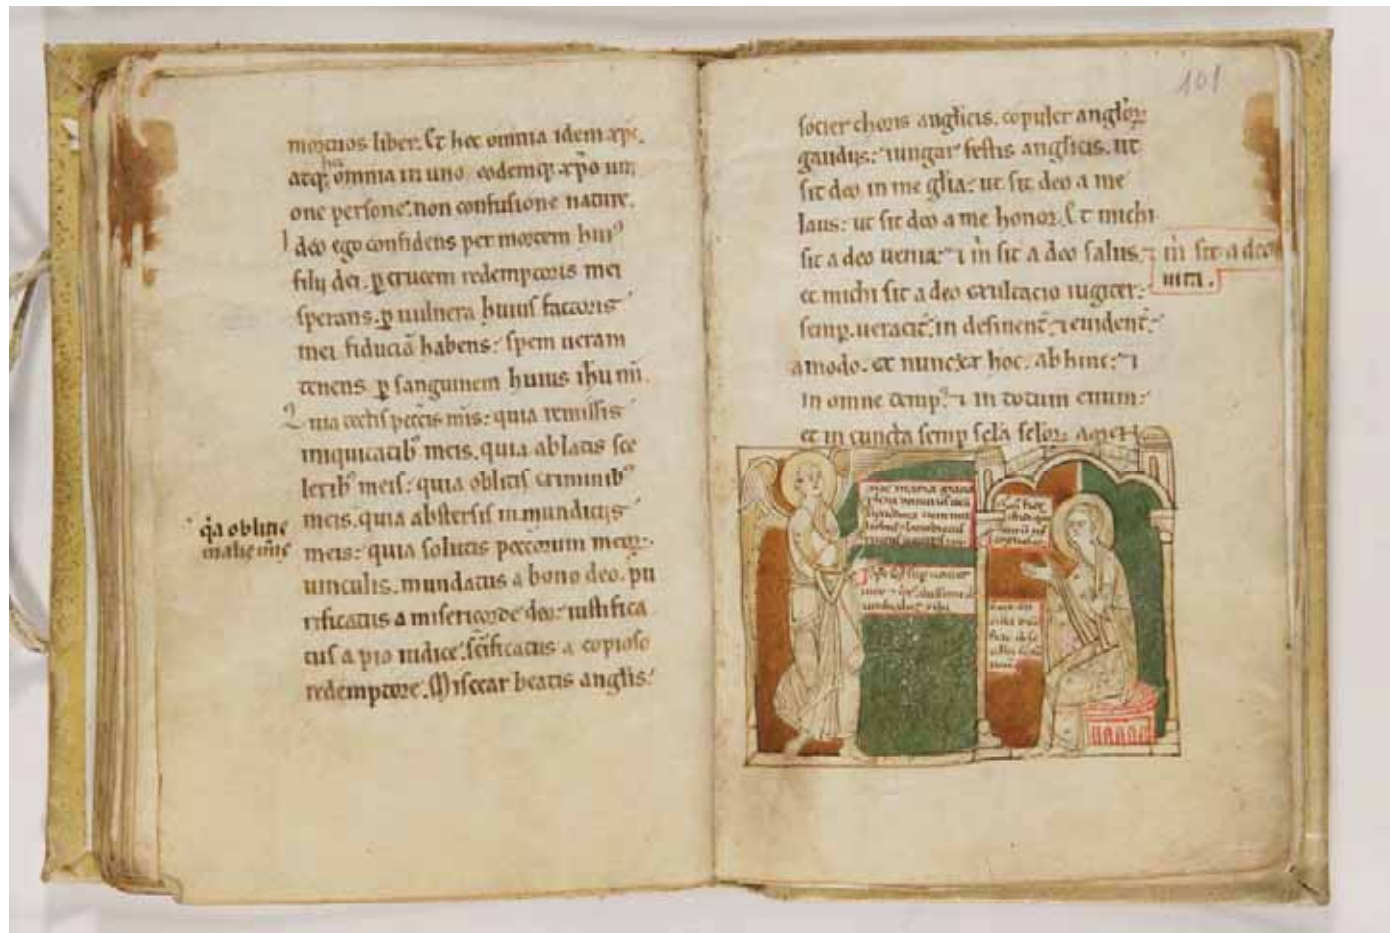 mortuos liber. Et hec omnia idem xpc.
hec
atq; omnia in uno eodemq; xpo uni
one persone. non confusione nature.
I deo ego confidens per mortem hui⁹
filij dei. p crucem redemptoris mei
sperans. p uulnera huius factoris
mei fiduciā habens: spem ueram
tenens. p sanguinem huius ihu mī.
Quia tectis peccīs mīs: quia remissis
iniquitatib⁹ meis. quia ablatis sce
lerib⁹ meis: quia oblitis criminib⁹
meis. quia abstersis inmundicijs
meis: quia solutis peccorum meoꝝ.
uinculis. mundatus a bono deo. pu
rificatus a misericorde deo: iustifica
tus a pio iudice. scīficatus a copioso
redemptore. Misccar beatis anglis:
q̄a oblite
malicie
101
socier choris anglicis. copuler angloꝝ:
gaudijs: iungar festis anglicis. ut
sit deo in me glīa: ut sit deo a me
laus: ut sit deo a me honor. Et michi
sit a deo uenia: ⁊ m̄ sit a deo salus. ⁊ m̄ sit a deo
uita.
et michi sit a deo exultacio iugiter:
semp. ueracit̄. in desinent̄. ⁊ euident̄.
amodo. et nunc. et hoc. ab hinc: ⁊
in omne temp⁹. ⁊ in totum euum:
et in cuncta semp scła scłoꝝ. amen
aue maria gratia
plena dominus tecū